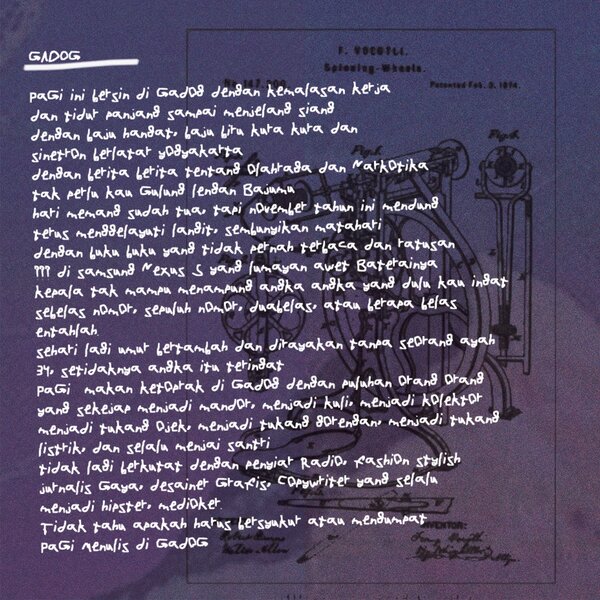 GADOG
F. VOEGTLI.
Spinning-Wheels.
No. 147,206.
Patented Feb. 3, 1874.
PaGi ini bersin di GadOg dengan kemalasan kerja
dan tidur panjang sampai menjelang siang
dengan baju hangat, baju biru kura kura dan
sinetrOn berlatar yOgyakarta
dengan berita berita tentang Olahraga dan NarkOtika
tak perlu kau Gulung lengan Bajumu
hari memang sudah tua, tapi nOvember tahun ini mendung
terus menggelayuti langit, sembunyikan matahari
dengan buku buku yang tidak pernah terbaca dan ratusan
??? di samsung Nexus S yang lumayan awet Baterainya
kepala tak mampu menampung angka angka yang dulu kau ingat
sebelas nOmOr, sepuluh nOmOr, duabelas, atau berapa belas
entahlah
sehari lagi umur bertambah dan dirayakan tanpa seOrang ayah
34, setidaknya angka itu teringat
PaGi makan ketOprak di GadOG dengan puluhan Orang Orang
yang sekejap menjadi mandOr, menjadi kuli, menjadi kOlektOr
menjadi tukang Ojek, menjadi tukang gOrengan, menjadi tukang
listrik, dan selalu menjai santri
tidak lagi berkutat dengan penyiar RadiO, FashiOn stylish
jurnalis Gaya, desainer GraFis, COpywriter yang selalu
menjadi hipster, mediOker
Tidak tahu apakah harus bersyukur atau mengumpat
PaGi menulis di GadOG
INVENTOR: